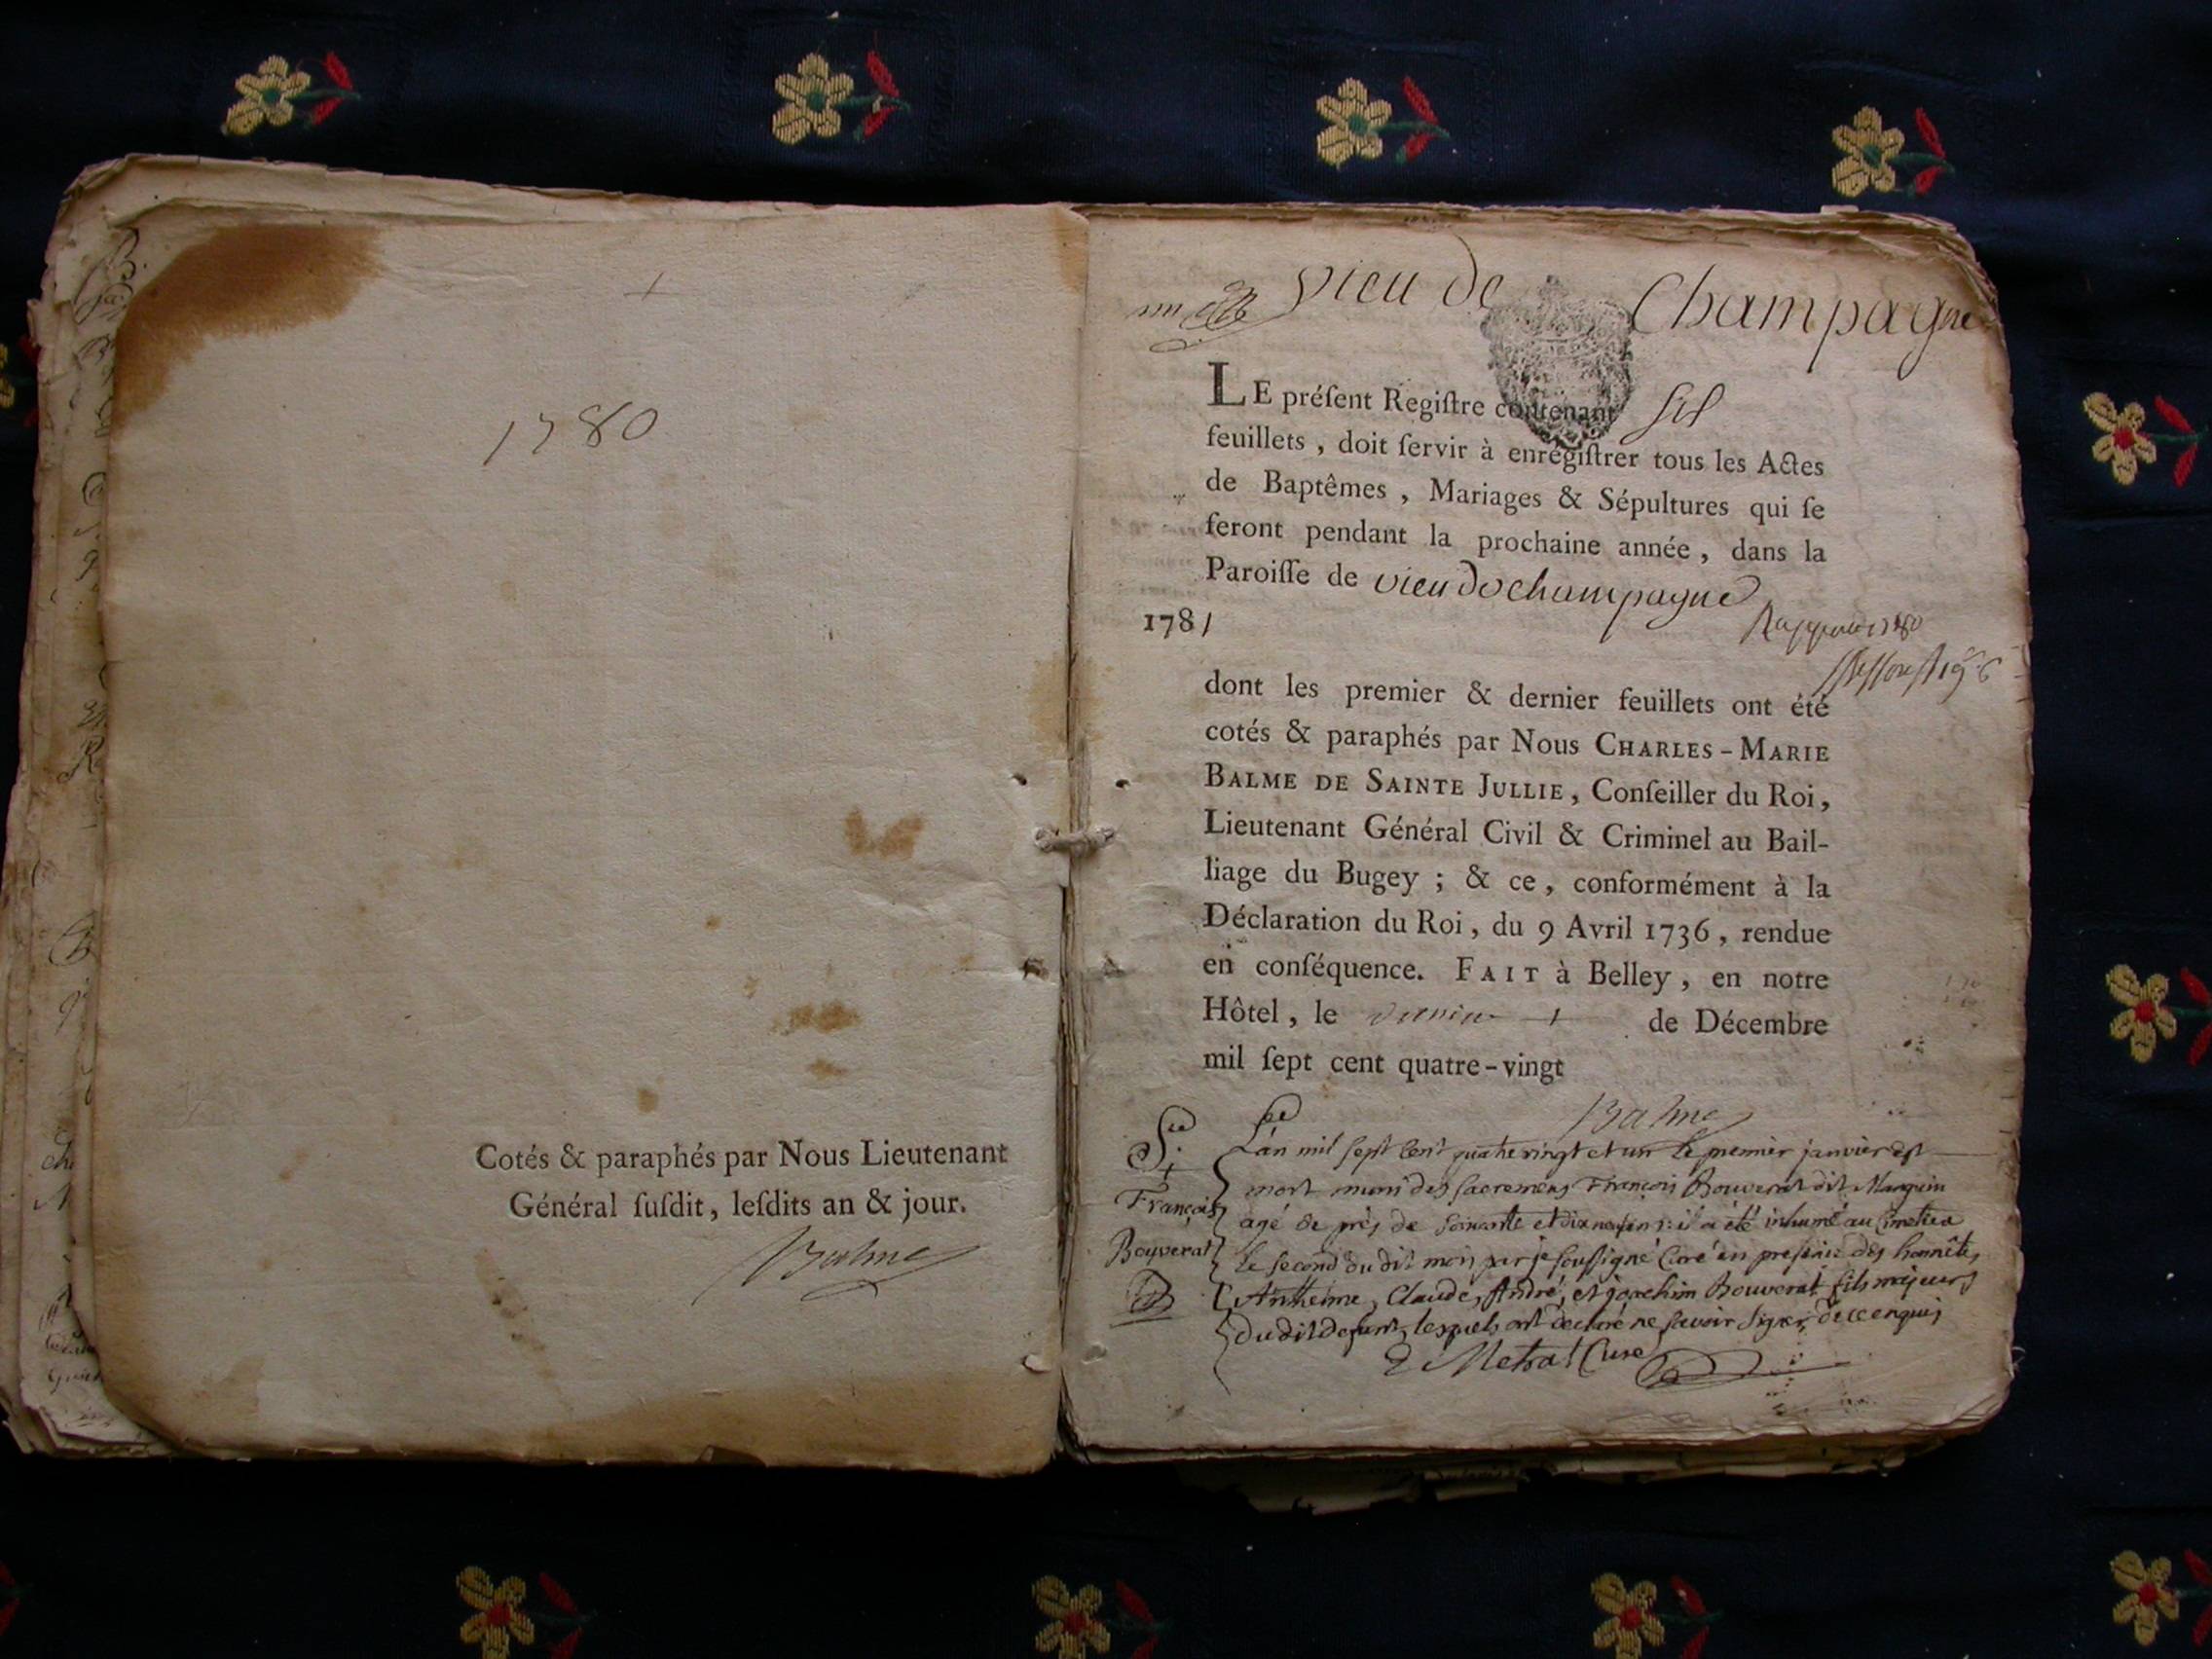 1780
Cotés & paraphés par Nous Lieutenant
Général suſdit, leſdits an & jour.
Balme
Vieu de Champagne
LE préſent Regiſtre contenant six
feuillets, doit ſervir à enrégiſtrer tous les Actes
de Baptêmes, Mariages & Sépultures qui ſe
feront pendant la prochaine année, dans la
Paroiſſe de vieu de champagne
1781
dont les premier & dernier feuillets ont été
cotés & paraphés par Nous CHARLES-MARIE
BALME DE SAINTE JULLIE, Conſeiller du Roi,
Lieutenant Général Civil & Criminel au Bail-
liage du Bugey ; & ce, conformément à la
Déclaration du Roi, du 9 Avril 1736, rendue
en conſéquence. FAIT à Belley, en notre
Hôtel, le dernier de Décembre
mil ſept cent quatre-vingt
Balme
François
Bouverat
L'an mil sept cent quatre vingt et un le premier janvier est
mort muni des sacremens François Bouverat dit Manguin
agé de près de soixante et dix neuf ans: il a été inhumé au Cimetiere
le second du dit mois par je soussigné Curé en presence des honnêtes
Anthelme, Claude, André, et joachim Bouverat fils majeurs
du dit defunt, lesquels ont declaré ne savoir signer de ce enquis
Metral Curé